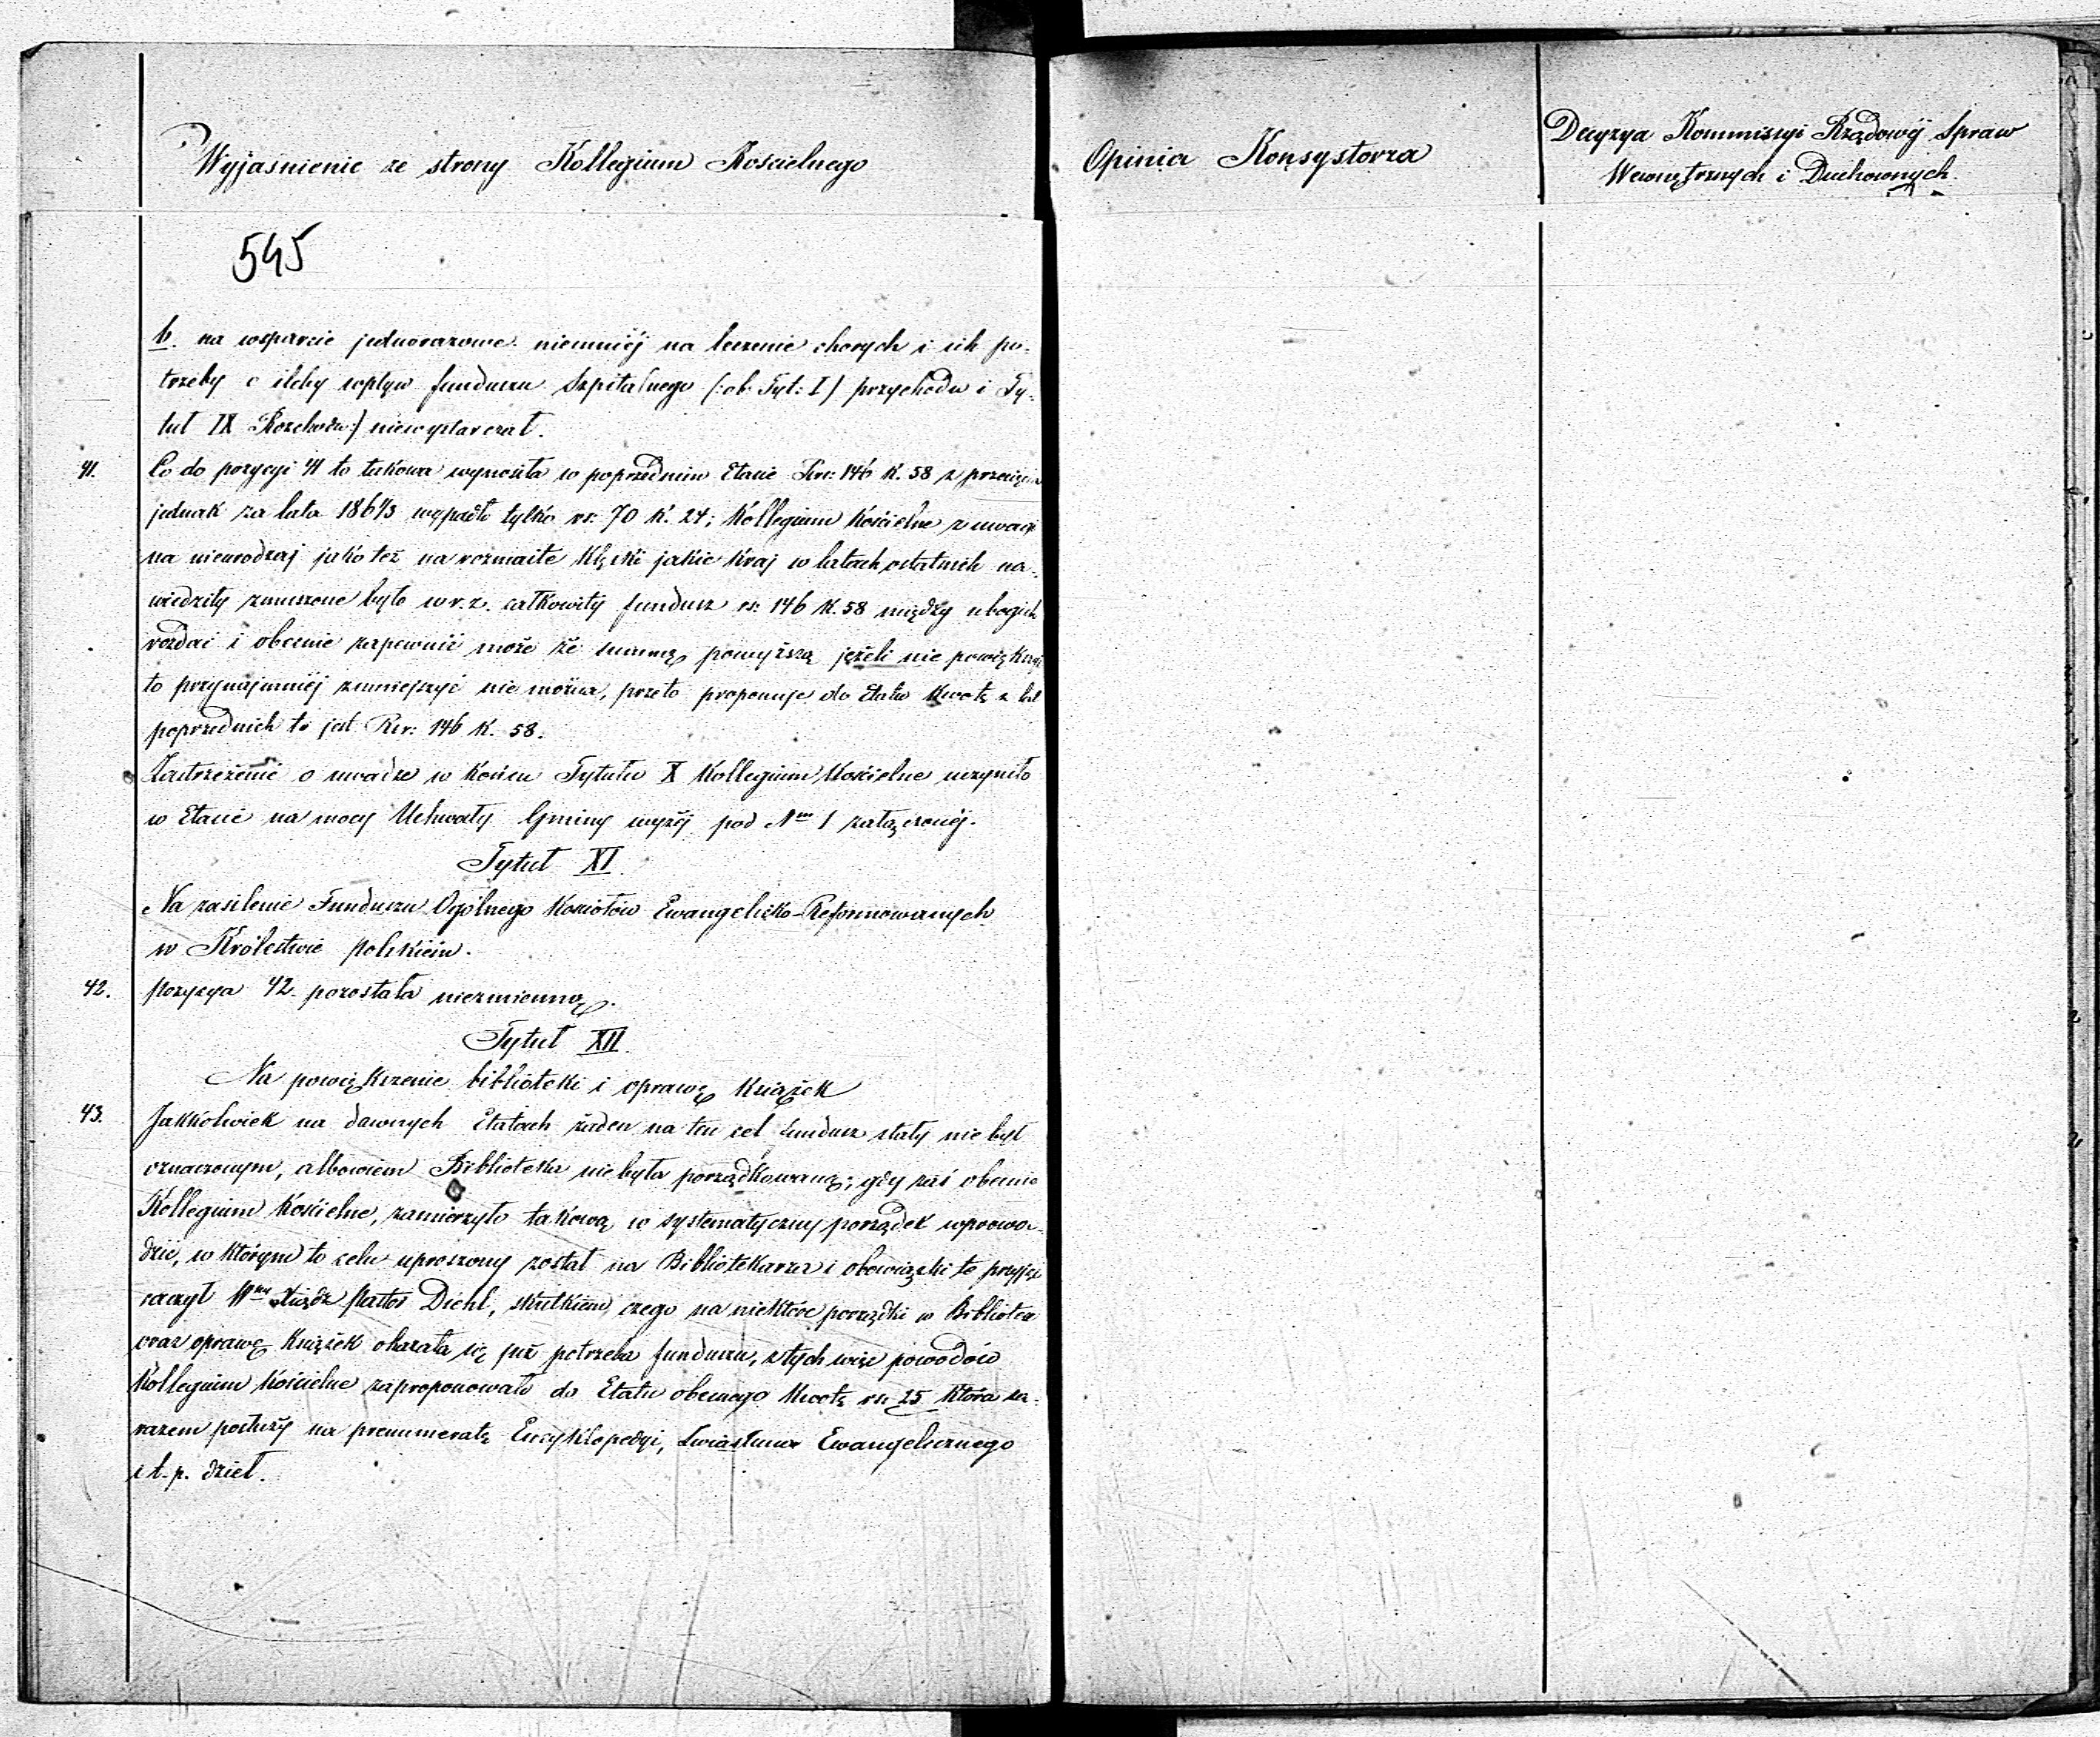 Wyjasnienie ze strony Kollegium Koscielnego
Opinia Konsystorza
Decyzya Kommissyi Rządowéj Spraw
Wewnętrznych i Duchownych
545
b. na wsparcie jednorazowe niemniéj na leczenie chorych i ich po-
trzeby o ileby wpływ funduszu Szpitalnego (: ob: Tyt: I) przychodu i Ty-
tuł IX Rozchodu:) niewystarczał.
41. Co do pozycyi 41 to takowa wynosiła w poprzednim Etacie Rsr: 146 K. 58 z przecięcia
jednak za lata 1861/3 wypadło tylko rs: 70 K. 24; Kollegium Kościelne z uwagi
na nieurodzaj jako też na rozmaite klęski jakie Kraj w latach ostatnich na-
wiedziły zmuszone było w r. z. całkowity fundusz rs: 146 K. 58 między ubogich
rozdać i obecnie zapewnić może że summę powyższą jeżeli nie powiększyć
to przynajmniéj zmniejszyć nie można, przeto proponuje do Etatu Kwotę z lat
poprzednich to jest Rsr: 146 K. 58.
Zastrzeżenie o uwadze w Końcu Tytułu X Kollegium Kościelne uczyniło
w Etacie na mocy Uchwały Gminy wyżéj pod Nrm 1 załączonéj.
Tytuł XI.
Na zasilenie Funduszu Ogólnego Kościołów Ewangelicko-Reformowanych
w Królestwie polskiém.
42. Pozycya 42. pozostała niezmienną.
Tytuł XII.
Na powiększenie biblioteki i oprawę Książek
43. Jakkolwiek na dawnych Etatach żaden na ten cel fundusz stały nie był
oznaczonym, albowiem Biblioteka nie była porządkowaną; gdy zaś obecnie
Kollegium Kościelne, zamierzyło takową w systematyczny porządek wprowa-
dzić, w którym to celu uproszony został na Bibliotekarza i obowiązki te przyjąć
raczył Wny Xiądz Pastor Diehl, skutkiem czego na niektóre porządki w Bibliotece
oraz oprawę Książek okazała się już potrzeba funduszu, z tych więc powodów
Kollegium Kościelne zaproponowało do Etatu obecnego Kwotę rsr 25 która za-
razem posłuży na prenumeratę Encyklopedyi, Zwiastuna Ewangelicznego
i t. p. dzieł.